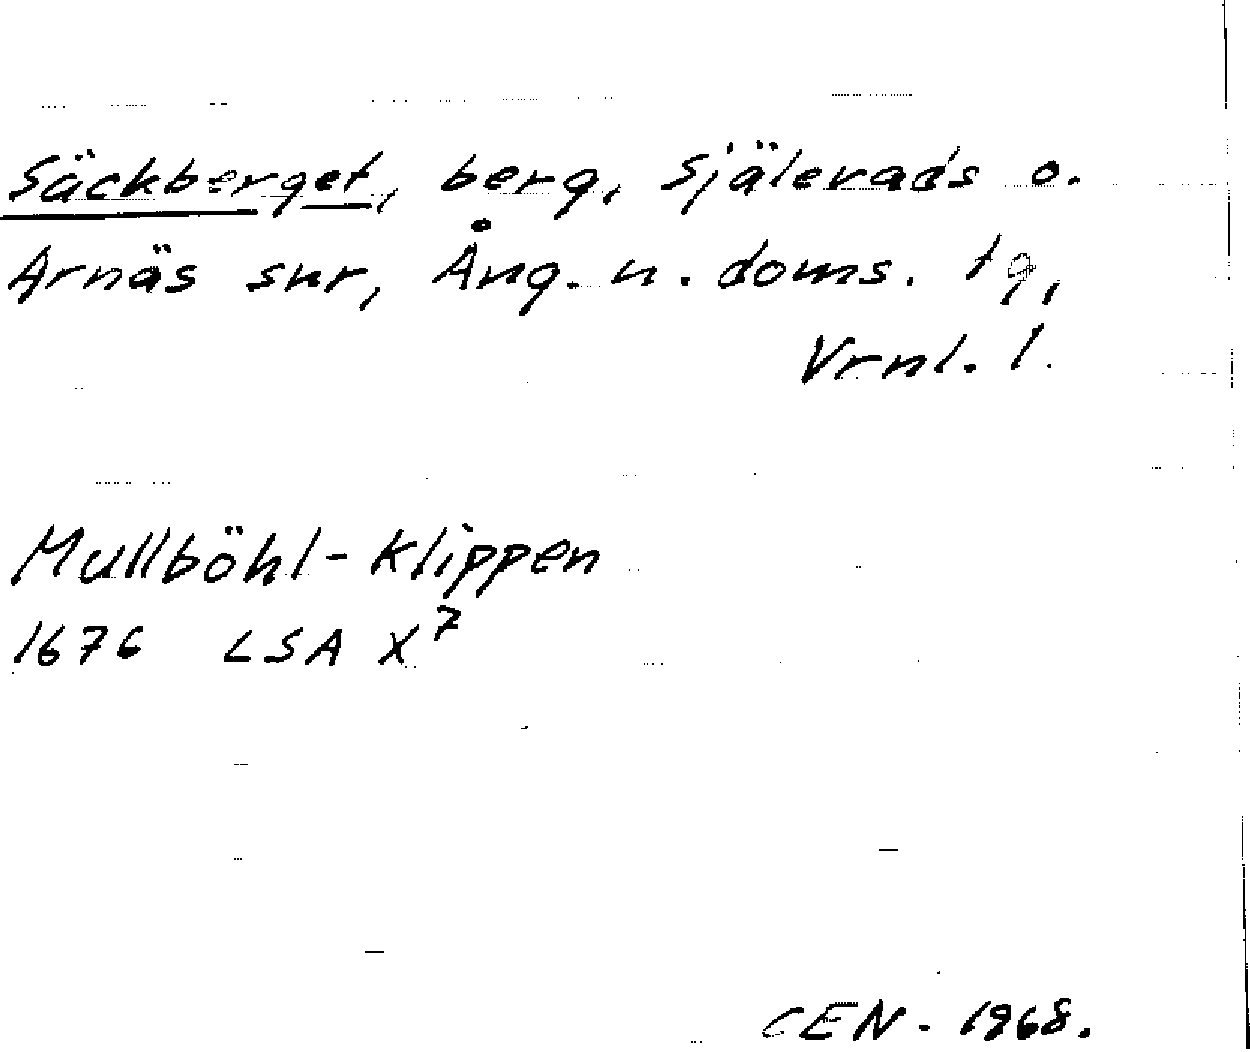 Säckberget, berg, Själevads o.
Arnäs snr, Ång. n. doms. tg,
Vrnl. l.
Mullböhl-Klippen
1676 LSA X⁷
CEN - 1968.